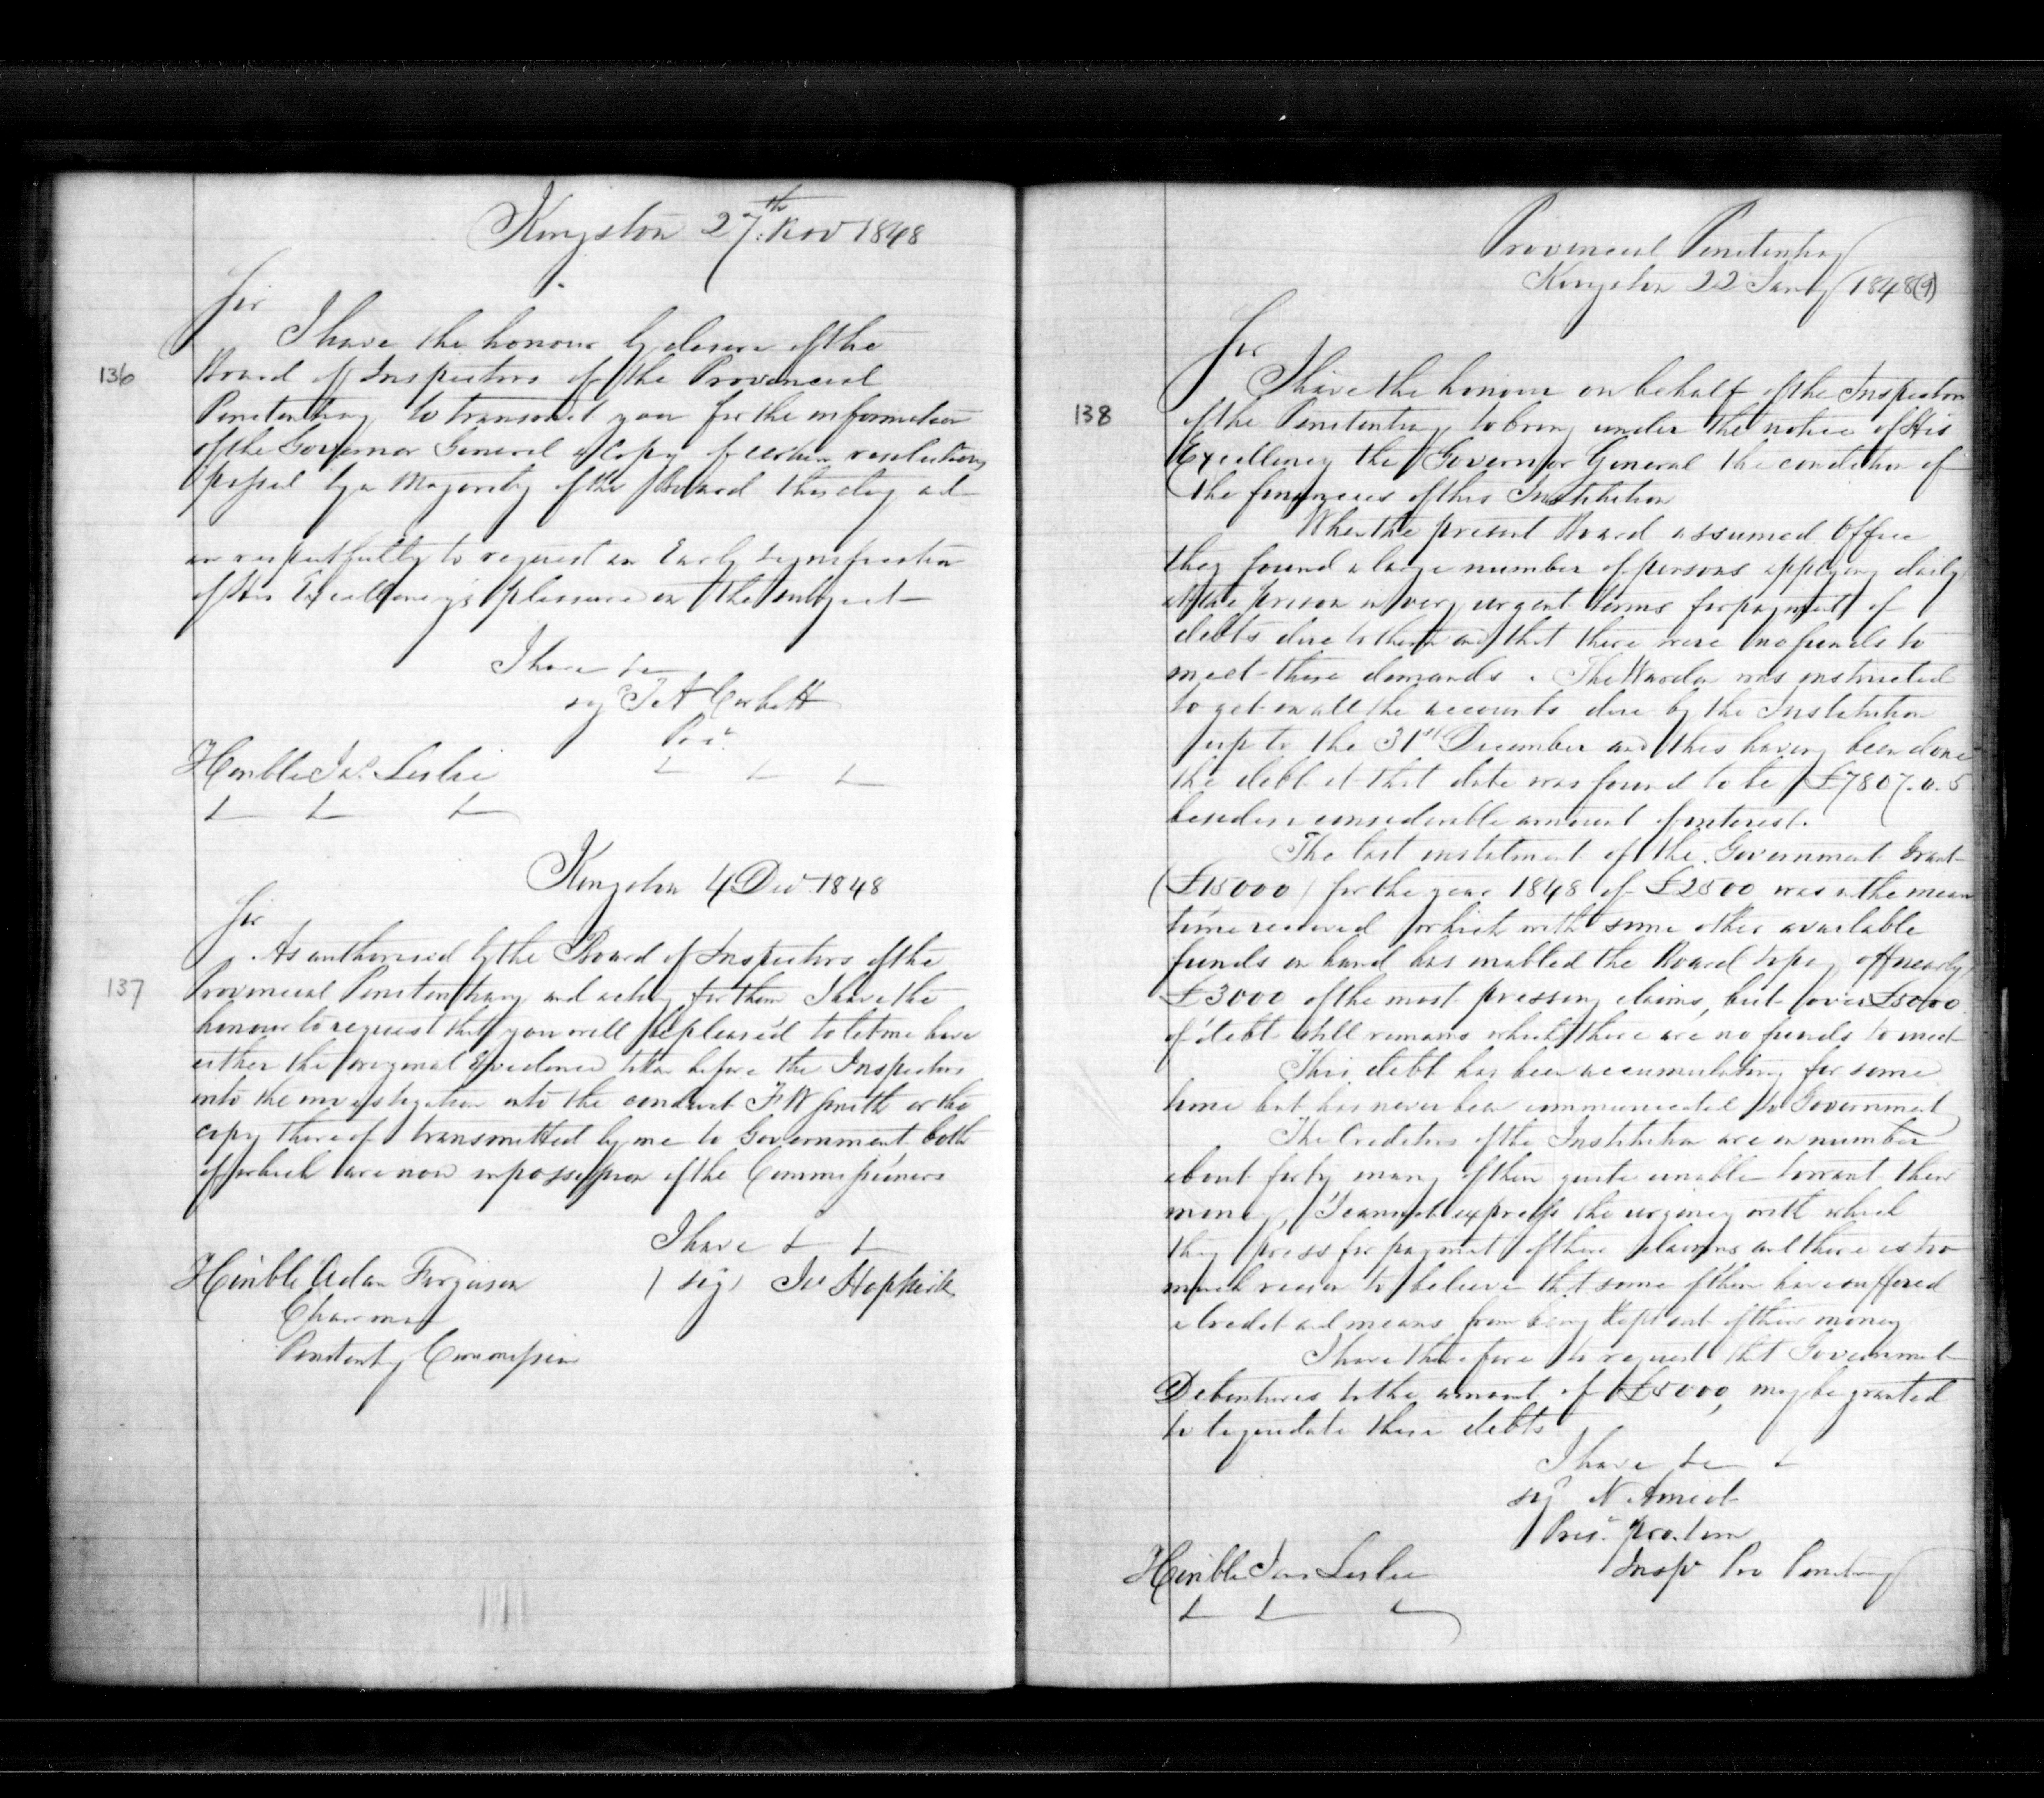 Kingston 27th. Nov 1848
Sir
I have the honour by desire of the
136
Board of Inspectors of the Provincial
Penitentiary to transmit you for the information
of the Governor General a Copy of certain resolutions
passed by a Majority of the Board this day and
am respectfully to request an Early signification
of His Excellency's pleasure on the subject
I have &c
sg T A Corbett
Pres.
Honble Jas. Leslie
& & &
Kingston 4 Dec 1848
Sir
As authorised by the Board of Inspectors of the
137
Provincial Penitentiary and acting for them I have the
honour to request that you will be pleased to let me have
either the original Evidence taken before the Inspectors
into the investigation into the conduct F W Smith or the
copy thereof transmitted by me to Government both
of which are now in possession of the Commissioners
I have & &
(sig) Jas Hopkirk
Honble Adam Ferguson
Chairman
Penitenty Commission
Provincial Penitentiary
Kingston 22 Jany 1848(9)
Sir
I have the honour on behalf of the Inspectors
138
of the Penitentiary to bring under the notice of His
Excellency the Governor General the condition of
the finances of this Institution
When the present Board assumed Office
they found a large number of persons applying daily
at the prison in very urgent terms for payment of
debts due to them and that there were no funds to
meet these demands. The Warden was instructed
to get in all the accounts due by the Institution
up to the 31st December and this having been done
the debt at that date was found to be £7807.0.5
besides a considerable amount of interest.
The last instalment of the Government Grant
(£15000) for the year 1848 of £2500 was in the mean
time received which with some other available
funds on hand has enabled the Board to pay off nearly
£3000 of the most pressing claims, but over £5000
of debt still remains which there are no funds to meet
This debt has been accumulating for some
time but has never been communicated to Government
The Creditors of the Institution are in number
about forty many of them quite unable to want their
money, I cannot express the urgency with which
they press for payment of their claims and there is too
much reason to believe that some of them have suffered
in Credit and means from being kept out of their money
I have therefore to request that Government
Debentures to the amount of £5000, may be granted
to liquidate these debts
I have &c &
sg N Amiot
Pres. pro. tem
Insp Pro Penitentiary
Honble Jas Leslie
& & &